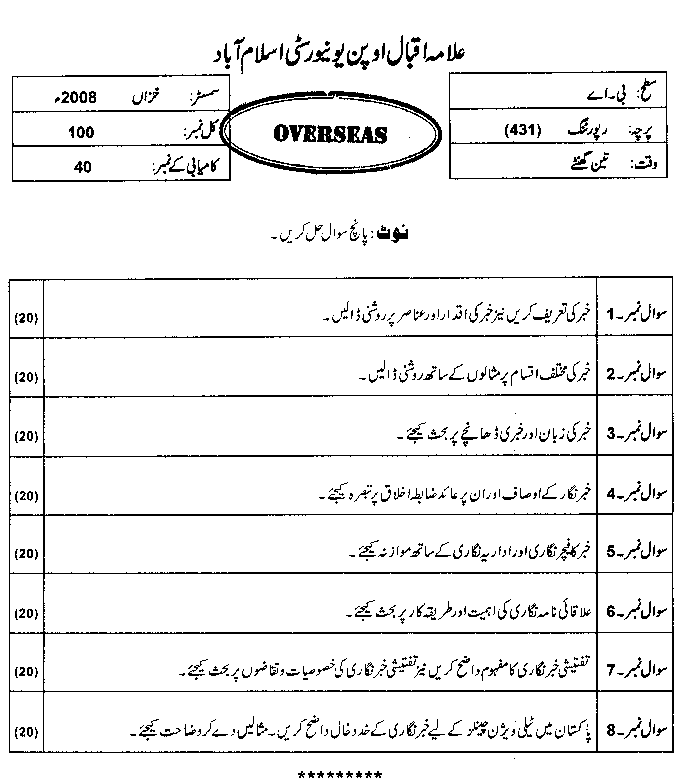 علامہ اقبال اوپن یونیورسٹی اسلام آباد
سطح: بی۔اے
پرچہ: رپورٹنگ (431)
وقت: تین گھنٹے
OVERSEAS
سمسٹر: خزاں 2008ء
کل نمبر: 100
کامیابی کے نمبر: 40
نوٹ: پانچ سوال حل کریں۔
سوال نمبر۔1 خبر کی تعریف کریں نیز خبر کی اقدار اور عناصر پر روشنی ڈالیں۔ (20)
سوال نمبر۔2 خبر کی مختلف اقسام پر مثالوں کے ساتھ روشنی ڈالیں۔ (20)
سوال نمبر۔3 خبر کی زبان اور خبری ڈھانچے پر بحث کیجئے۔ (20)
سوال نمبر۔4 خبر نگار کے اوصاف اور ان پر عائد ضابطہ اخلاق پر تبصرہ کیجئے۔ (20)
سوال نمبر۔5 خبر کا فیچر نگاری اور اداریہ نگاری کے ساتھ موازنہ کیجئے۔ (20)
سوال نمبر۔6 علاقائی نامہ نگاری کی اہمیت اور طریقہ کار پر بحث کیجئے۔ (20)
سوال نمبر۔7 تفتیشی خبر نگاری کا مفہوم واضح کریں نیز تفتیشی خبر نگاری کی خصوصیات و تقاضوں پر بحث کیجئے۔ (20)
سوال نمبر۔8 پاکستان میں ٹیلی ویژن چینلز کے لیے خبر نگاری کے خدوخال واضح کریں۔ مثالیں دے کر وضاحت کیجئے۔ (20)
*********